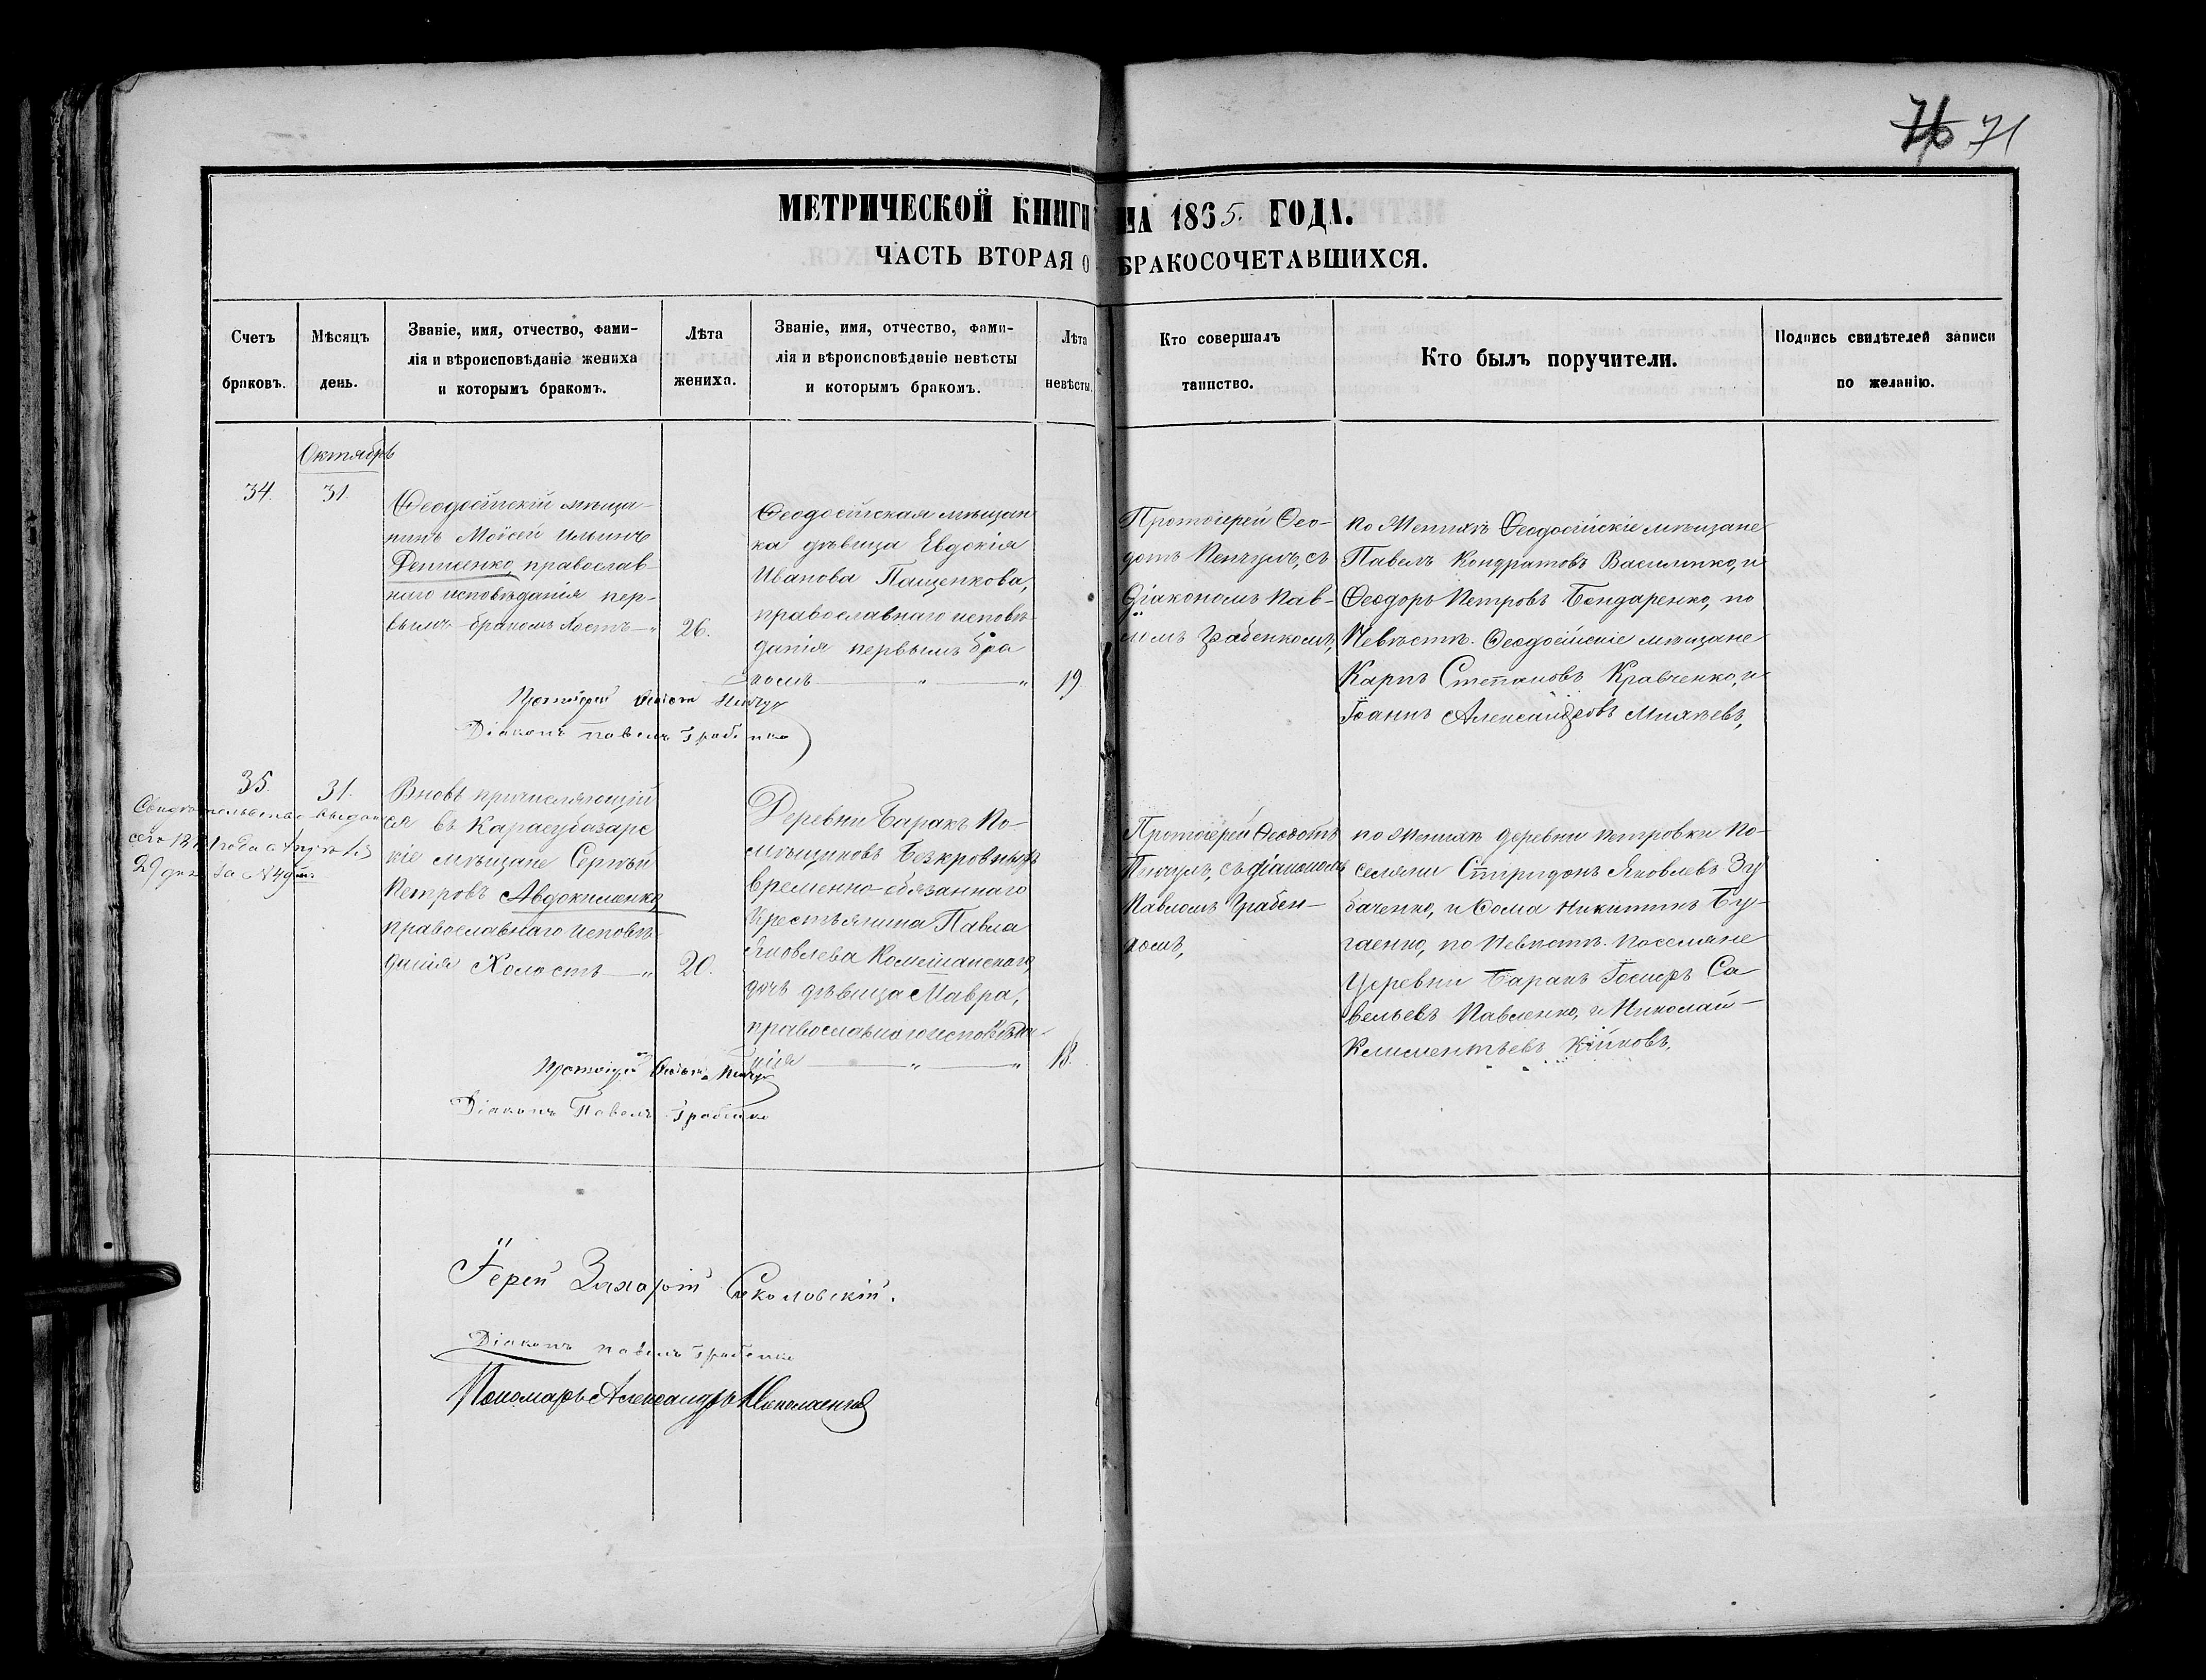 76 71
МЕТРИЧЕСКОЙ КНИГИ НА 1865. ГОДА.
ЧАСТЬ ВТОРАЯ О БРАКОСОЧЕТАВШИХСЯ.
Счетъ браковъ.
Мѣсяцъ день.
Званіе, имя, отчество, фами-
лія и вѣроисповѣданіе жениха
и которымъ бракомъ.
Лѣта жениха.
Званіе, имя, отчество, фами-
лія и вѣроисповѣданіе невѣсты
и которымъ бракомъ.
Лѣта невѣсты.
Кто совершалъ таинство.
Кто былъ поручители.
Подпись свидѣтелей записи
по желанію.
Октябрь
34.
31.
Ѳеодосійскій мѣща-
нинъ Моѵсей Ильинъ
Денисенко, православ-
наго исповѣданія пер-
вымъ бракомъ
26.
Ѳеодосійская мѣщан
ка дѣвица Евдокія
Иванова Пащенкова,
православнаго исповѣ-
данія первымъ бра
комъ
19.
Протоіерей Ѳео-
дотъ Пенчулъ, съ
Діакономъ Пав-
ломъ Грабенкомъ,
по Женихѣ Ѳеодосійскіе мѣщане
Павелъ Кондратовъ Василенко, и
Ѳеодоръ Петровъ Бондаренко, по
Невѣстѣ. Ѳеодосійскіе мѣщане
Карпъ Степановъ Кравченко, и
Іоаннъ Александровъ
Протоіерей Ѳеодотъ Пенчул
Діаконъ Павелъ Грабенко
35.
31.
Свидѣтельство выдан
29 дня за №
Вновь причисляющій
ся въ Карасубазарс
кіе мѣщане Сергѣй
Петровъ Авдокименко
православнаго исповѣ-
данія Холостъ
20.
Деревни Баракъ По-
мѣщиковъ Безкровныхъ
временно-обязаннаго
Крестьянина Павла
Яковлева
дочь дѣвица Мавра,
православнаго исповѣда-
нія
18.
Протоіерей Ѳеодотъ
Пенчулъ, съ діакономъ
Павломъ Грабен-
комъ,
по Женихѣ деревни Петровки По-
селяне Спиридонъ Яковлевъ Зу
баченко, и Ѳома Никитинъ Бу-
гаенко, по Невѣстѣ. Поселяне
Деревни Баракъ Іосифъ Са
вельевъ Павленко, и Николай
Климентьевъ
Протоіерей Ѳеодотъ Пенчул
Діаконъ Павелъ Грабенко
Іерей Захарій Соколовскій.
Діаконъ Павелъ Грабенко
Пономарь Александръ